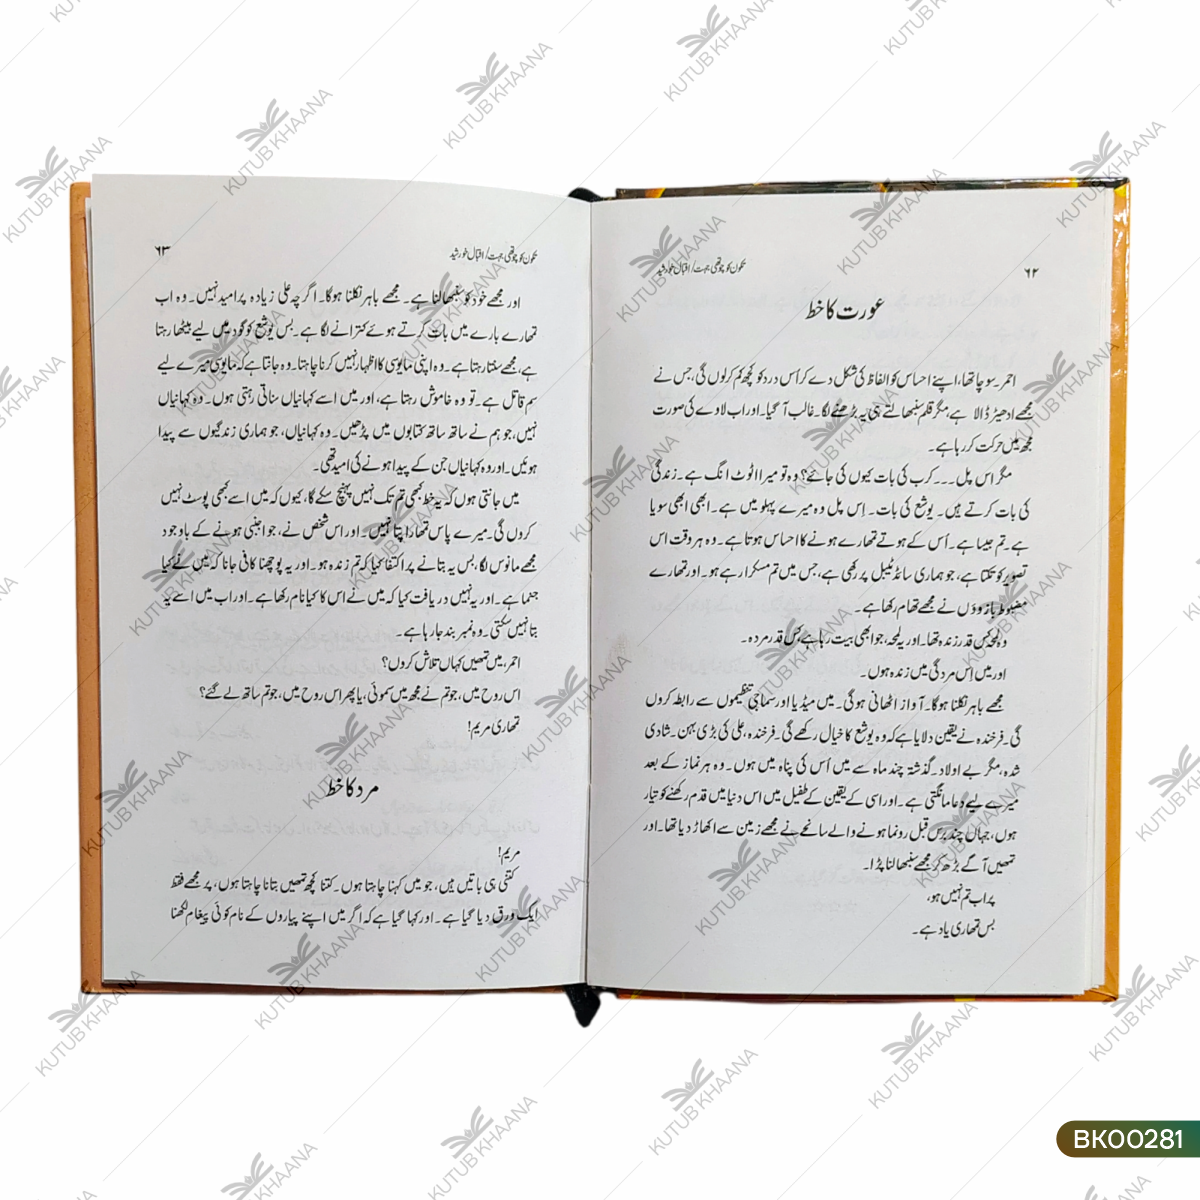 تکون کو چوتھی جہت/ اقبال خورشید ۶۲
عورت کا خط
احمر۔ سوچا تھا، اپنے احساس کو الفاظ کی شکل دے کر اُس درد کو کچھ کم کر لوں گی، جس نے
مجھے ادھیڑ ڈالا ہے مگر قلم سنبھالتے ہی یہ بڑھنے لگا۔ غالب آ گیا۔ اور اب لاوے کی صورت
مجھ میں حرکت کر رہا ہے۔
مگر اس پل ۔۔۔ کرب کی بات کیوں کی جائے؟ وہ تو میرا اٹوٹ انگ ہے۔ زندگی
کی بات کرتے ہیں۔ یوشع کی بات۔ اِس پل وہ میرے پہلو میں ہے۔ ابھی ابھی سویا
ہے۔ تم جیسا ہے۔ اُس کے ہوتے تمھارے ہونے کا احساس ہوتا ہے۔ وہ ہر وقت اس
تصویر کو تکتا ہے، جو ہماری سائڈ ٹیبل پر رکھی ہے، جس میں تم مسکرا رہے ہو۔ اور تمھارے
مضبوط بازوؤں نے مجھے تھام رکھا ہے۔
وہ لمحہ کس قدر زندہ تھا۔ اور یہ لمحہ، جو ابھی بیت رہا ہے کس قدر مردہ۔
اور میں اِس مردگی میں زندہ ہوں۔
مجھے باہر نکلنا ہوگا۔ آواز اٹھانی ہوگی۔ میں میڈیا اور سماجی تنظیموں سے رابطہ کروں
گی۔ فرخندہ نے یقین دلایا ہے کہ وہ یوشع کا خیال رکھے گی۔ فرخندہ، علی کی بڑی بہن۔ شادی
شدہ، مگر بے اولاد۔ گذشتہ چند ماہ سے میں اُس کی پناہ میں ہوں۔ وہ ہر نماز کے بعد
میرے لیے دعا مانگتی ہے۔ اور اسی کے یقین کے طفیل میں اس دنیا میں قدم رکھنے کو تیار
ہوں، جہاں چند برس قبل رونما ہونے والے سانحے نے مجھے زمین سے اکھاڑ دیا تھا۔ اور
تمھیں آگے بڑھ کر مجھے سنبھالنا پڑا۔
پر اب تم نہیں ہو،
بس تمھاری یاد ہے۔
تکون کو چوتھی جہت/ اقبال خورشید ۶۳
اور مجھے خود کو سنبھالنا ہے۔ مجھے باہر نکلنا ہوگا۔ اگرچہ علی زیادہ پرامید نہیں۔ وہ اب
تمھارے بارے میں بات کرتے ہوئے کترانے لگا ہے۔ بس یوشع کو گود میں لیے بیٹھا رہتا
ہے، مجھے سنتا رہتا ہے۔ وہ اپنی مایوسی کا اظہار نہیں کرنا چاہتا۔ وہ جانتا ہے کہ مایوسی میرے لیے
سم قاتل ہے۔ تو وہ خاموش رہتا ہے، اور میں اسے کہانیاں سناتی رہتی ہوں۔ وہ کہانیاں
نہیں، جو ہم نے ساتھ ساتھ کتابوں میں پڑھیں۔ وہ کہانیاں، جو ہماری زندگیوں سے پیدا
ہوئیں۔ اور وہ کہانیاں جن کے پیدا ہونے کی امید تھی۔
میں جانتی ہوں کہ یہ خط کبھی تم تک نہیں پہنچ سکے گا، کیوں کہ میں اسے کبھی پوسٹ نہیں
کروں گی۔ میرے پاس تمھارا پتا نہیں۔ اور اس شخص نے، جو اجنبی ہونے کے باوجود
مجھے مانوس لگا، بس یہ بتانے پر اکتفا کیا کہ تم زندہ ہو۔ اور یہ پوچھنا کافی جانا کہ میں نے کیا
جنما ہے۔ اور یہ نہیں دریافت کیا کہ میں نے اس کا کیا نام رکھا ہے۔ اور اب میں اسے یہ
بتا نہیں سکتی۔ وہ نمبر بند جا رہا ہے۔
احمر، میں تمھیں کہاں تلاش کروں؟
اس روح میں، جو تم نے مجھ میں سموئی، یا پھر اس روح میں، جو تم ساتھ لے گئے؟
تمھاری مریم!
مرد کا خط
مریم!
کتنی ہی باتیں ہیں، جو میں کہنا چاہتا ہوں۔ کتنا کچھ تمھیں بتانا چاہتا ہوں، پر مجھے فقط
ایک ورق دیا گیا ہے۔ اور کہا گیا ہے کہ اگر میں اپنے پیاروں کے نام کوئی پیغام لکھنا
KUTUB KHAANA
BK00281